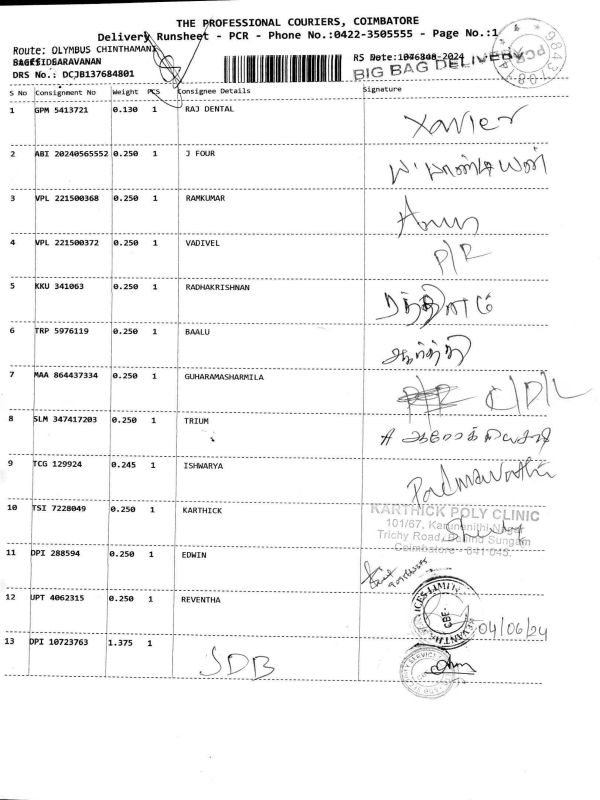 THE PROFESSIONAL COURIERS, COIMBATORE
Delivery Runsheet - PCR - Phone No.:0422-3505555 - Page No.:1
Route: OLYMBUS CHINTHAMANI
DRS No.: DCJB137684801
BIG BAG DELIVERY
S No Consignment No Weight PCS Consignee Details Signature
1 GPM 5413721 0.130 1 RAJ DENTAL Xavier
2 ABI 20240565552 0.250 1 J FOUR
3 VPL 221500368 0.250 1 RAMKUMAR
4 VPL 221500372 0.250 1 VADIVEL P/R
5 KKU 341063 0.250 1 RADHAKRISHNAN
6 TRP 5976119 0.250 1 BAALU
7 MAA 864437334 0.250 1 GUHARAMASHARMILA C/D/L
8 SLM 347417203 0.250 1 TRIUM
9 TCG 129924 0.245 1 ISHWARYA Padmavathi
10 TSI 7228049 0.250 1 KARTHICK
KARTHICK POLY CLINIC
101/67, Karunanithi Nagar
Trichy Road, Sungam
Coimbatore - 641 045.
11 DPI 288594 0.250 1 EDWIN
12 UPT 4062315 0.250 1 REVENTHA
CBE
04/06/24
13 DPI 10723763 1.375 1 SDB